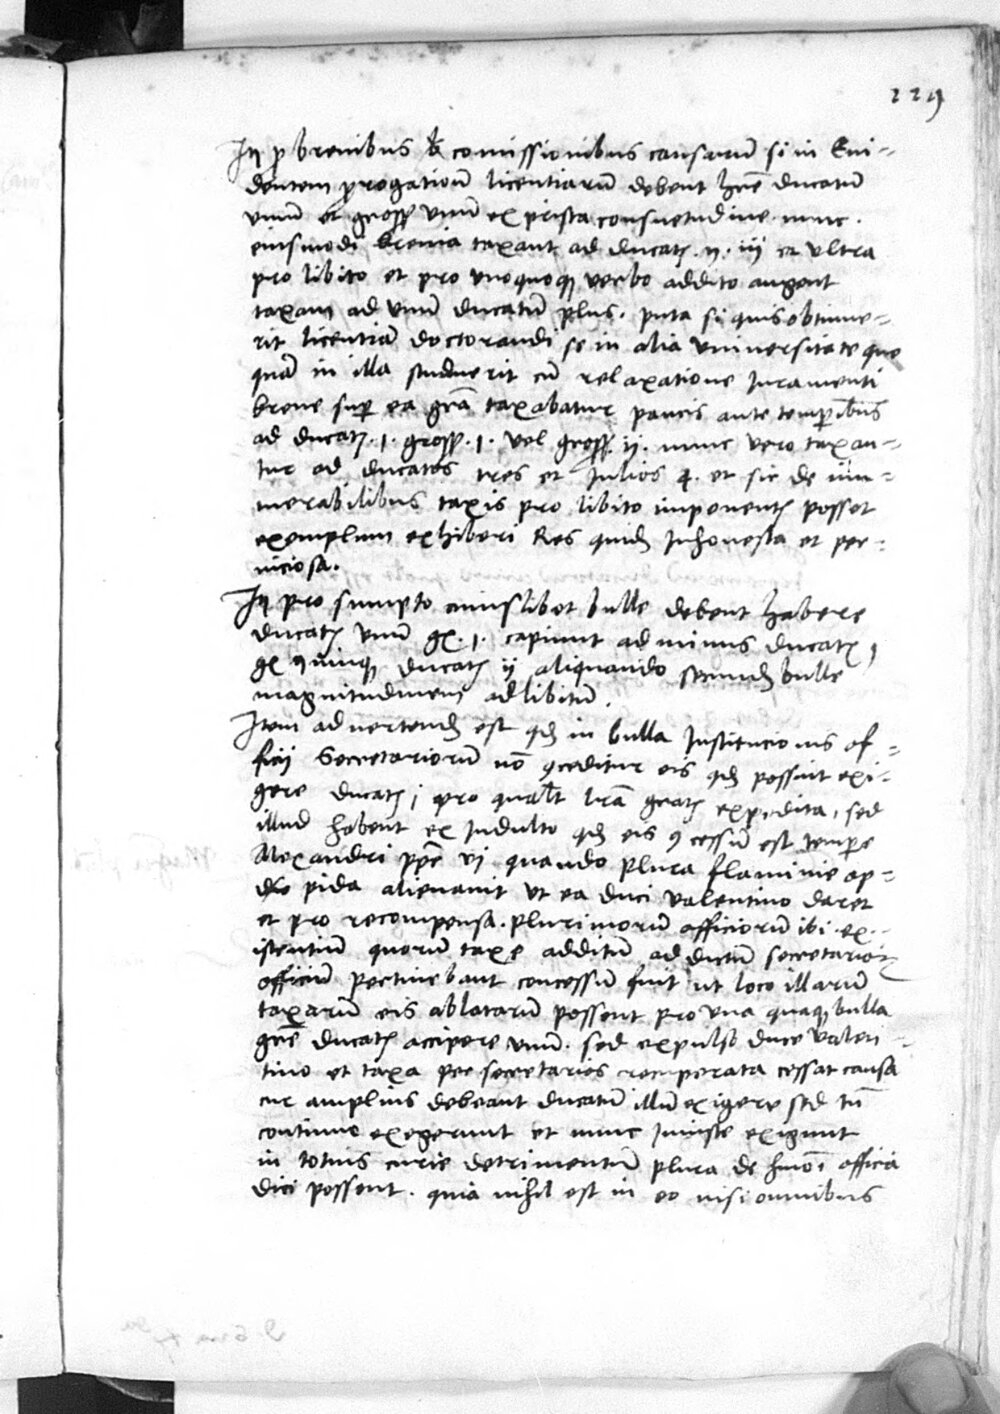 229
In pro brevibus & comissionibus causarũ si in Evi-
dentem prorogationũ licentiarũ debent hr̃e ducatũ
unũ et gross unũ ex prista consuetudine. nunc.
eiusmodi brevia taxant ad ducat. ij. iij et ultra
pro libito et pro unoquoq verbo addito augent
taxam ad unũ ducatũ plus. puta si quis obtinue-
rit licentiã doctorandi se in alia universitate quã
quã in illa studuerit cũ relaxatione Juramenti
breve sup ea grã taxabatur paucis ante temporibus
ad ducat. 1. gross. 1. vel gross. ij. nunc vero taxan-
tur ad ducatos tres et Julios 4. et sic de inn-
merabilibus taxis pro libito imponent posset
exemplum exhiberi Res quid Inhonesta et per-
niciosa.
In pro sumpto cuiuslibet bulle debent habere
ducat unũ gr. 1. capiunt ad minus ducat 1
gr quinq ducat ij aliquando secund bulle
magnitudinem ad libitũ.
Item advertend est qd in bulla Institucionis of-
ficij Secretariorũ nõ conceditur eis qd possint exi-
gere ducat j pro qualt lrã grat expedita, sed
illud habent ex Indulto qd eis concessũ est tempore
Alexandri ppe vj quando plura flaminie op-
pida alienavit ut ea duci valentino daret
et pro recompensa. plurimorũ officiorũ ibi. ex-
istentiũ quorũ taxe additũ ad dictũ secretarior
officiũ pertinebant concessũ fuit ut loco illarũ
taxarũ eis ablatarũ possent pro una quaq bulla
grẽ ducat accipere unũ. sed expulso duce valen-
tino et taxa per secretarios recuperata cessat causa
cur amplius debeant ducatũ illũ exigere sed tñ
continue exegerunt et nunc Iniuste exigunt
in totius curie detrimentũ plura de hmõi officia
dici possent. quia nihil est in eo nisi omnibus